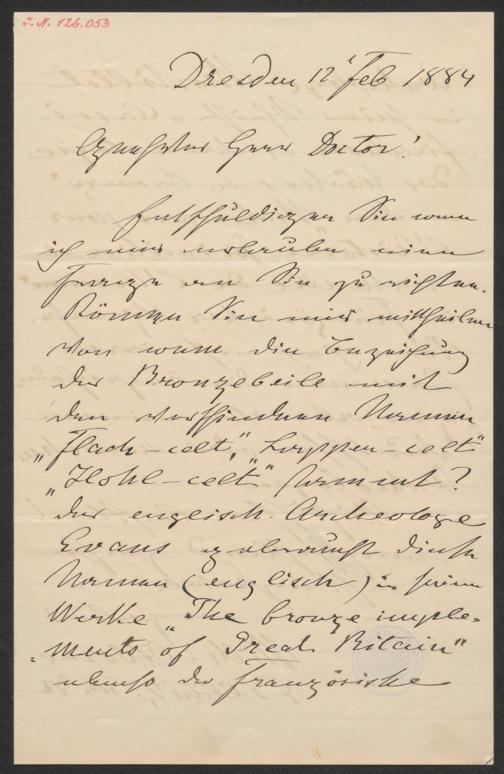 J. N. 126.053
Dresden 12 Feb 1884
Geehrter Herr Doctor!
Entschuldigen Sie wenn
ich mir erlaube eine
Frage an Sie zu richten.
Können Sie mir mittheilen
von wem die Bezeichung
der Bronzebeile mit
den verschiedenen Namen
„Flach-celt", „Lappen-celt"
„Hohl-celt" kommt?
der englisch. Archeologe
Evans gebraucht diese
Namen (englisch) in seinem
Werke „The bronze imple-
ments of Great Britain"
ebenso der Französische